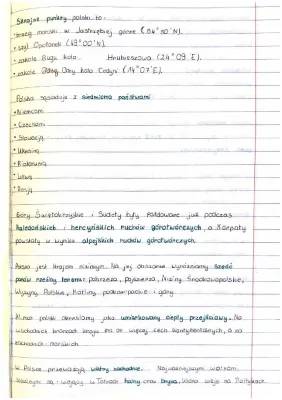 Skrajne punkty polski to:
• brzeg morski w Jastrzębiej górze (54°50'N).
• szyt Opołonek (49°00'N).
• zakole Bugu koło Hrubieszowa (24°09'E).
• zakole Odry Osiny koło Cedyni (14°07'E).
Polska sąsiaduje z siedmioma państwami
• Niemcami
• Czechami
• Słowacją
• Ukrainą
• Białorusią
• Litwą
• Rosją
Góry Świętokrzyskie i Sudety były fałdowane już podczas
kaledońskich i hercyńskich ruchów górotwórczych, a Karpaty
powstały w wyniku alpejskich ruchów górotwórczych.
Polska jest krajem nizinnym. Na jej obszarze wyróżniamy sześć
pasów rzeźby terenu: pobrzeża, pojezierza, Niziny Środkowopolskie,
Wyżyny Polskie, Kotliny podkarpackie i góry.
Klimat polski określamy jako umiarkowany ciepły przejściowy. Na
wschodnich krańcach kraju ma on więcej cech kontynentalnych, a na
zachodnich morskich.
W Polsce przeważają wiatry zachodnie. Najważniejszym wiatrem
lokalnym są: wiejący w Tatrach halny oraz bryza, która wieje na Bałtykiem.